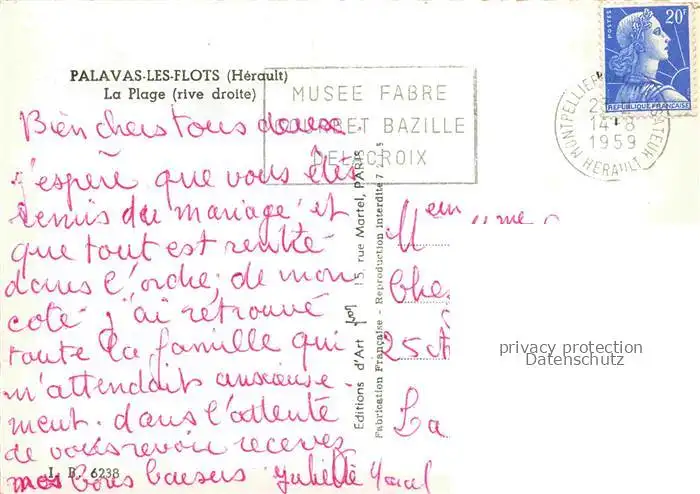 PALAVAS-LES-FLOTS (Hérault)
La Plage (rive droite)
MUSEE FABRE
COURBET BAZILLE
DELACROIX
POSTES
20F
REPUBLIQUE FRANÇAISE
MONTPELLIER
14-8
1959
HERAULT
Bien chers tous deux
j'espère que vous êtes
remis du mariage et
que tout est rentré
dans l'ordre, de mon
coté j'ai retrouvé
toute la famille qui
m'attendait anxieuse-
ment. dans l'attente
de vous revoir recevez
mes bons baisers Juliette Marcel
I. R. 6238
Editions d'Art 15, rue Martel, PARIS
Fabrication Française - Reproduction Interdite
Che
25
La
privacy protection
Datenschutz